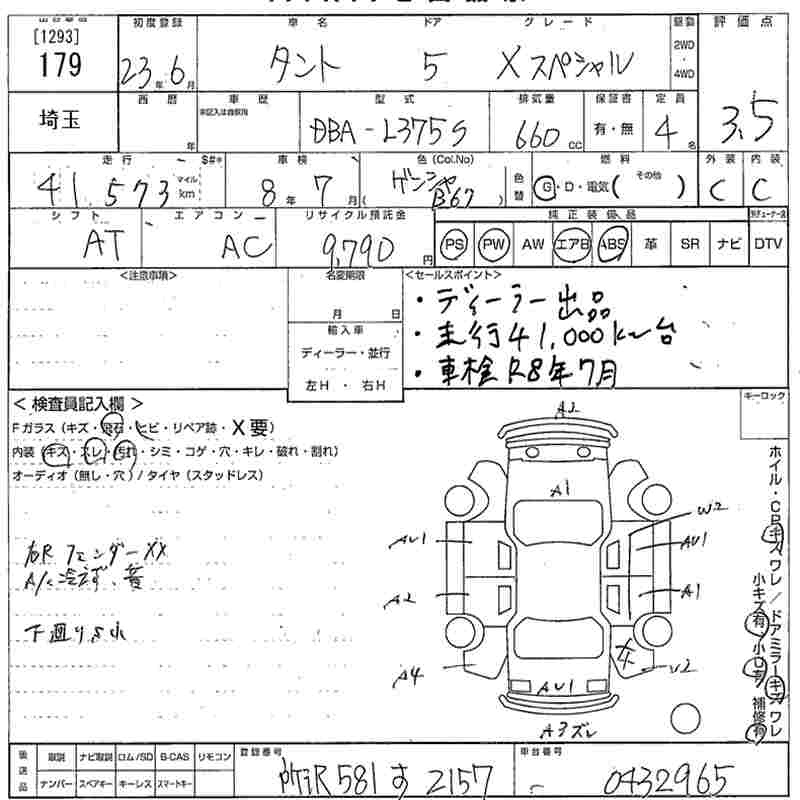 [1293] 179
初度登録 車名 ドア グレード 駆動 評価点
23年6月 タント 5 Xスペシャル 2WD ・ 4WD
埼玉 西暦 年 車歴 未記入は自家用 型式 排気量 保証書 定員 3.5
DBA-L375S 660cc 有・無 4名
走行 $#* 車検 色(Col.No) 色替 燃料 その他 外装 内装
41,573 マイル km 8年7月 ( B67 ) G・D・電気( ) C C
シフト エアコン リサイクル預託金 純正装備品
AT AC 9,790円 PS PW AW エアB ABS 革 SR ナビ DTV
<注意事項> 名変期限 <セールスポイント>
月 日
・ディーラー出品
・走行41,000km台
・車検R8年7月
輸入車
ディーラー・並行
左H ・ 右H
キーロック
<検査員記入欄>
Fガラス(キズ・飛石・ヒビ・リペア跡・X要)
内装(キズ・スレ・汚れ・シミ・コゲ・穴・キレ・破れ・割れ)
オーディオ(無し・穴)/タイヤ(スタッドレス)
右Rフェンダー XX
A/C冷えず、音
下廻りS小
A2
A1
W2
AU1
AU1
A2
A1
A4
U2
AU1
A3ズレ
ホイル・CPキズワレ/ドアミラーキズワレ
小キズ有 小凹有 補修有
後送品 取説 ナビ取説 ロム/SD B-CAS リモコン
ナンバー スペアキー キーレス スマートキー
登録番号 581 す 2157
車台番号 0432965